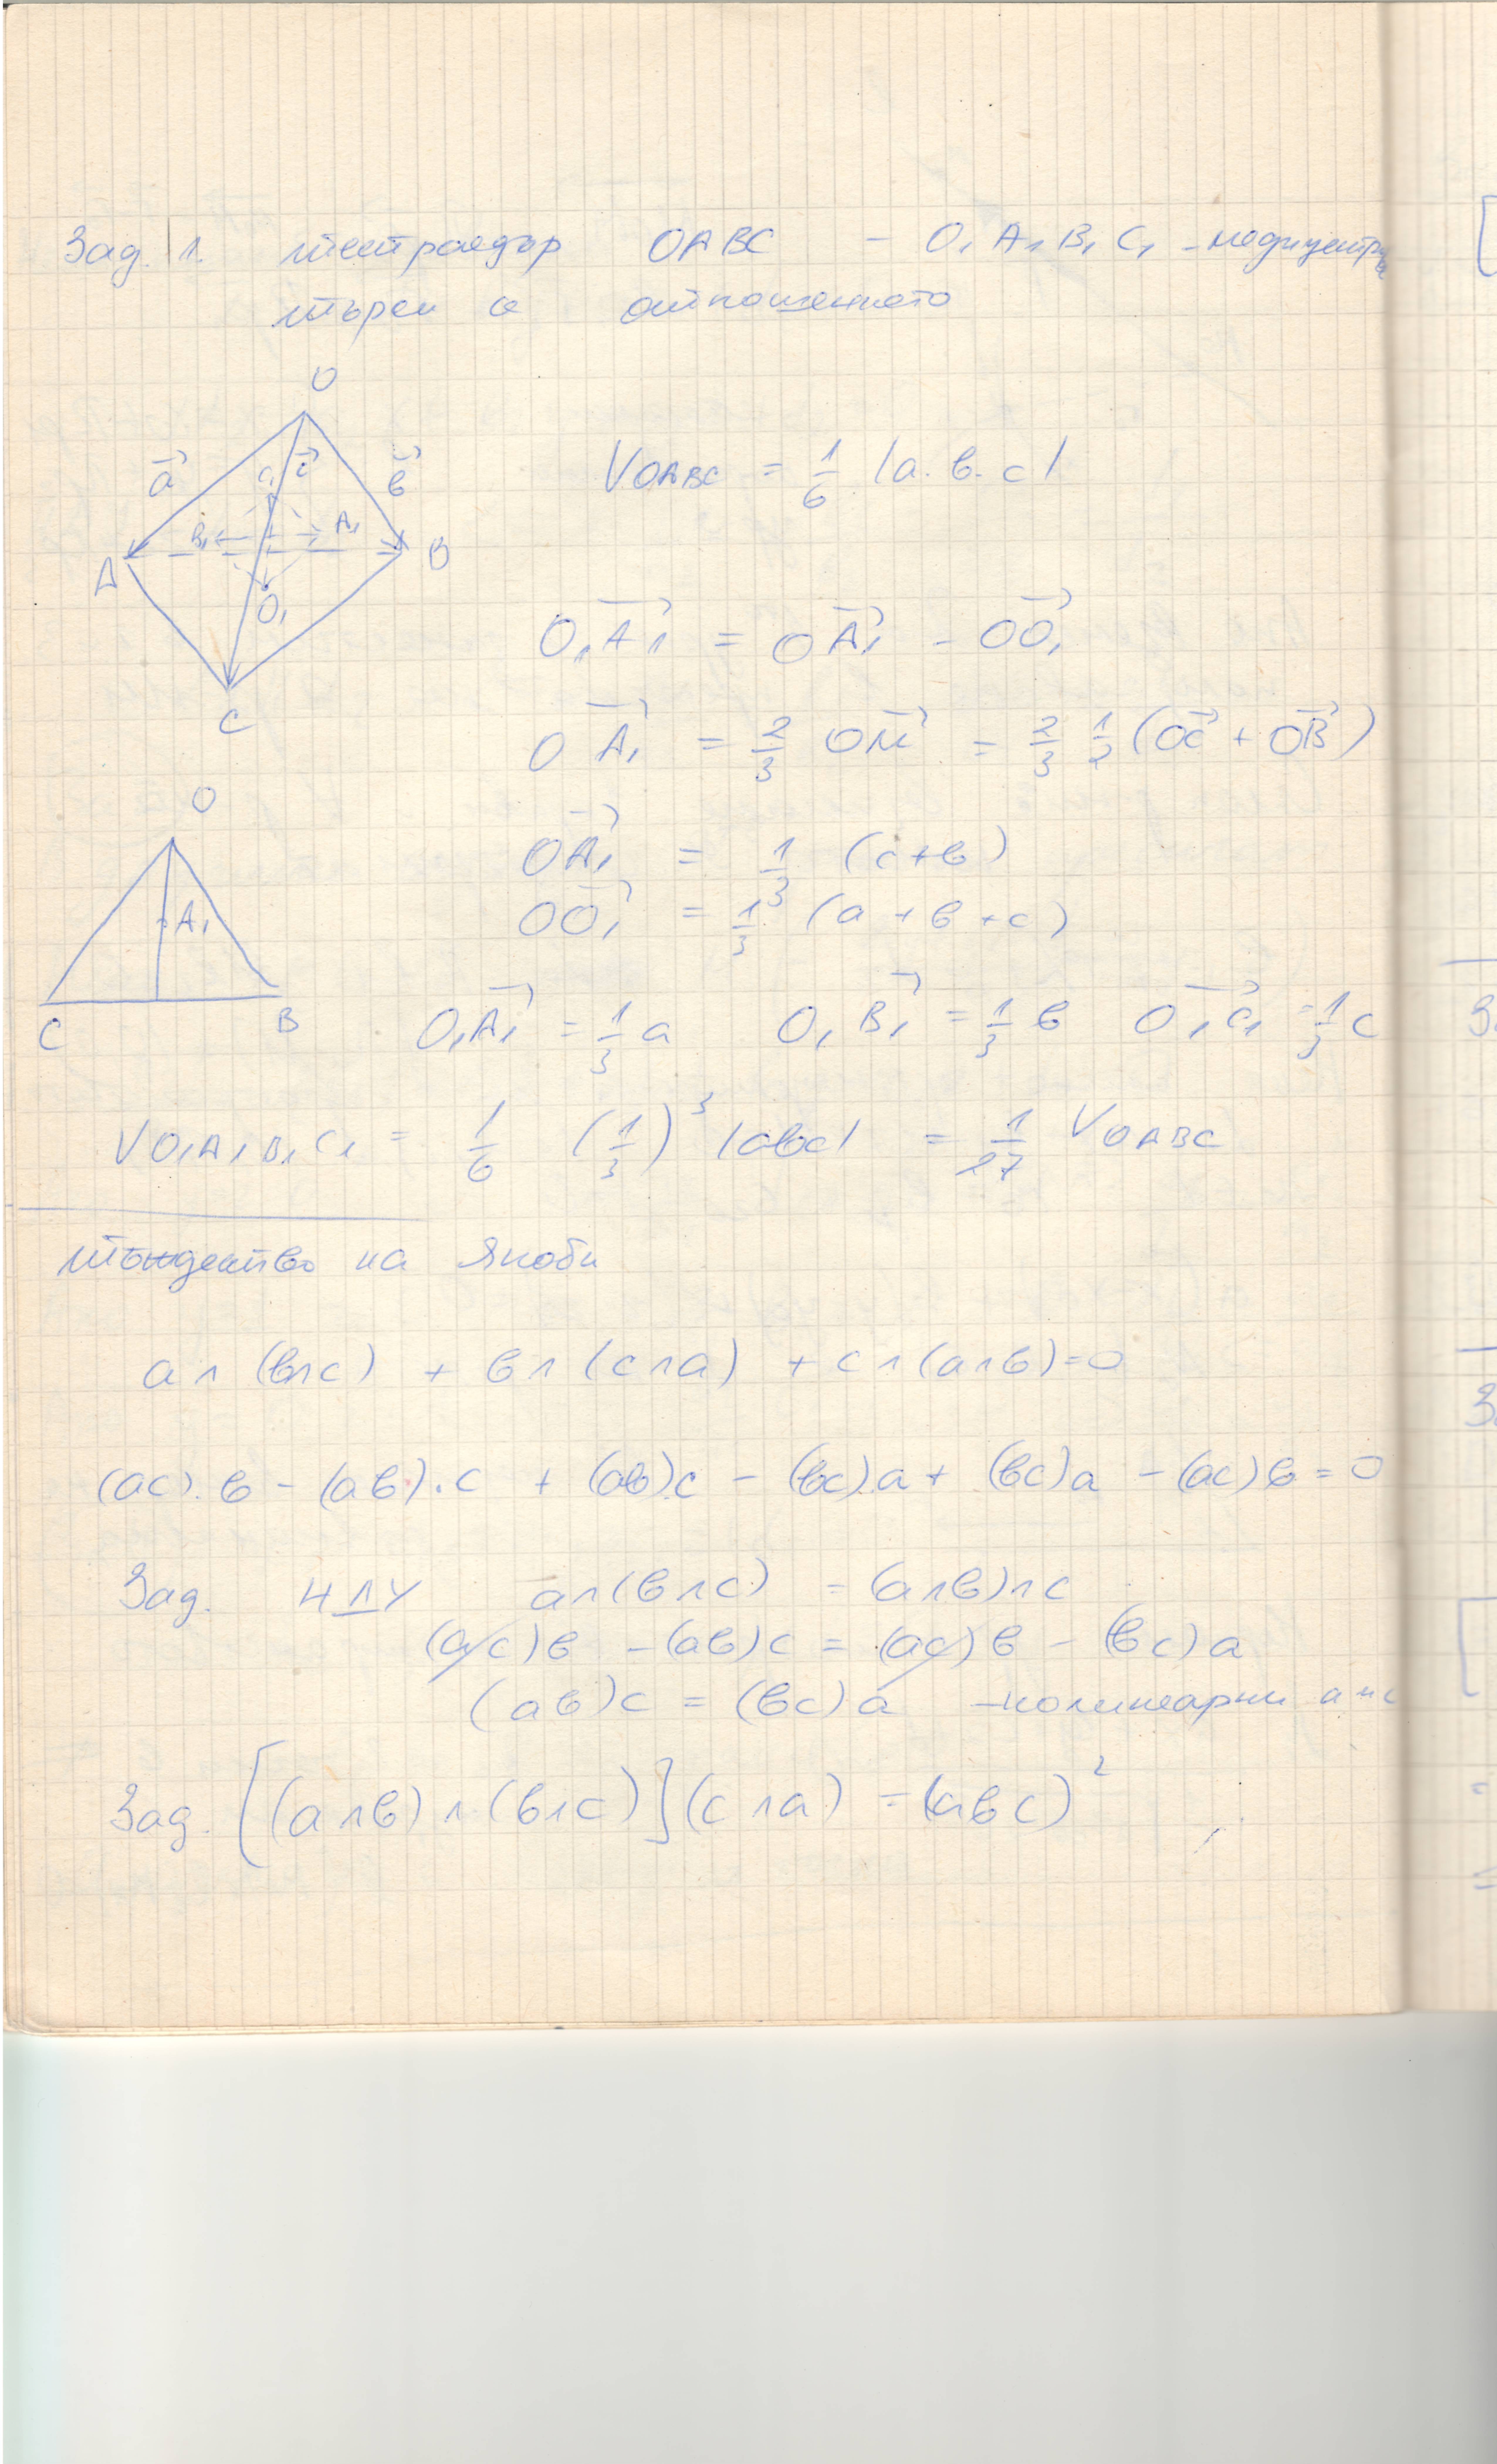 Зад. 1. тетраедър OABC – O₁ A₁ B₁ C₁ – медицентрове
търси се отношението
O
a⃗ c⃗ b⃗
C₁
B₁ A₁
A B
O₁
C
V OABC = 1/6 |a. b. c|
O₁A₁⃗ = OA₁⃗ – OO₁⃗
OA₁⃗ = 2/3 OM⃗ = 2/3 1/2 (OC⃗ + OB⃗)
O
OA₁⃗ = 1/3 (c+b)
A₁
OO₁⃗ = 1/3 (a + b + c)
C B
O₁A₁⃗ = 1/3 a O₁B₁⃗ = 1/3 b O₁C₁⃗ = 1/3 c
V O₁A₁B₁C₁ = 1/6 (1/3)³ |abc| = 1/27 V OABC
Тъждество на Якоби
a∧(b∧c) + b∧(c∧a) + c∧(a∧b)=0
(ac).b – (ab).c + (ab)c – (bc).a + (bc)a – (ac)b = 0
Зад. НДУ a∧(b∧c) = (a∧b)∧c
(ac)b – (ab)c = (ac)b – (bc)a
(ab)c = (bc)a – колинеарни a и c
Зад. [(a∧b)∧(b∧c)](c∧a) = (abc)²